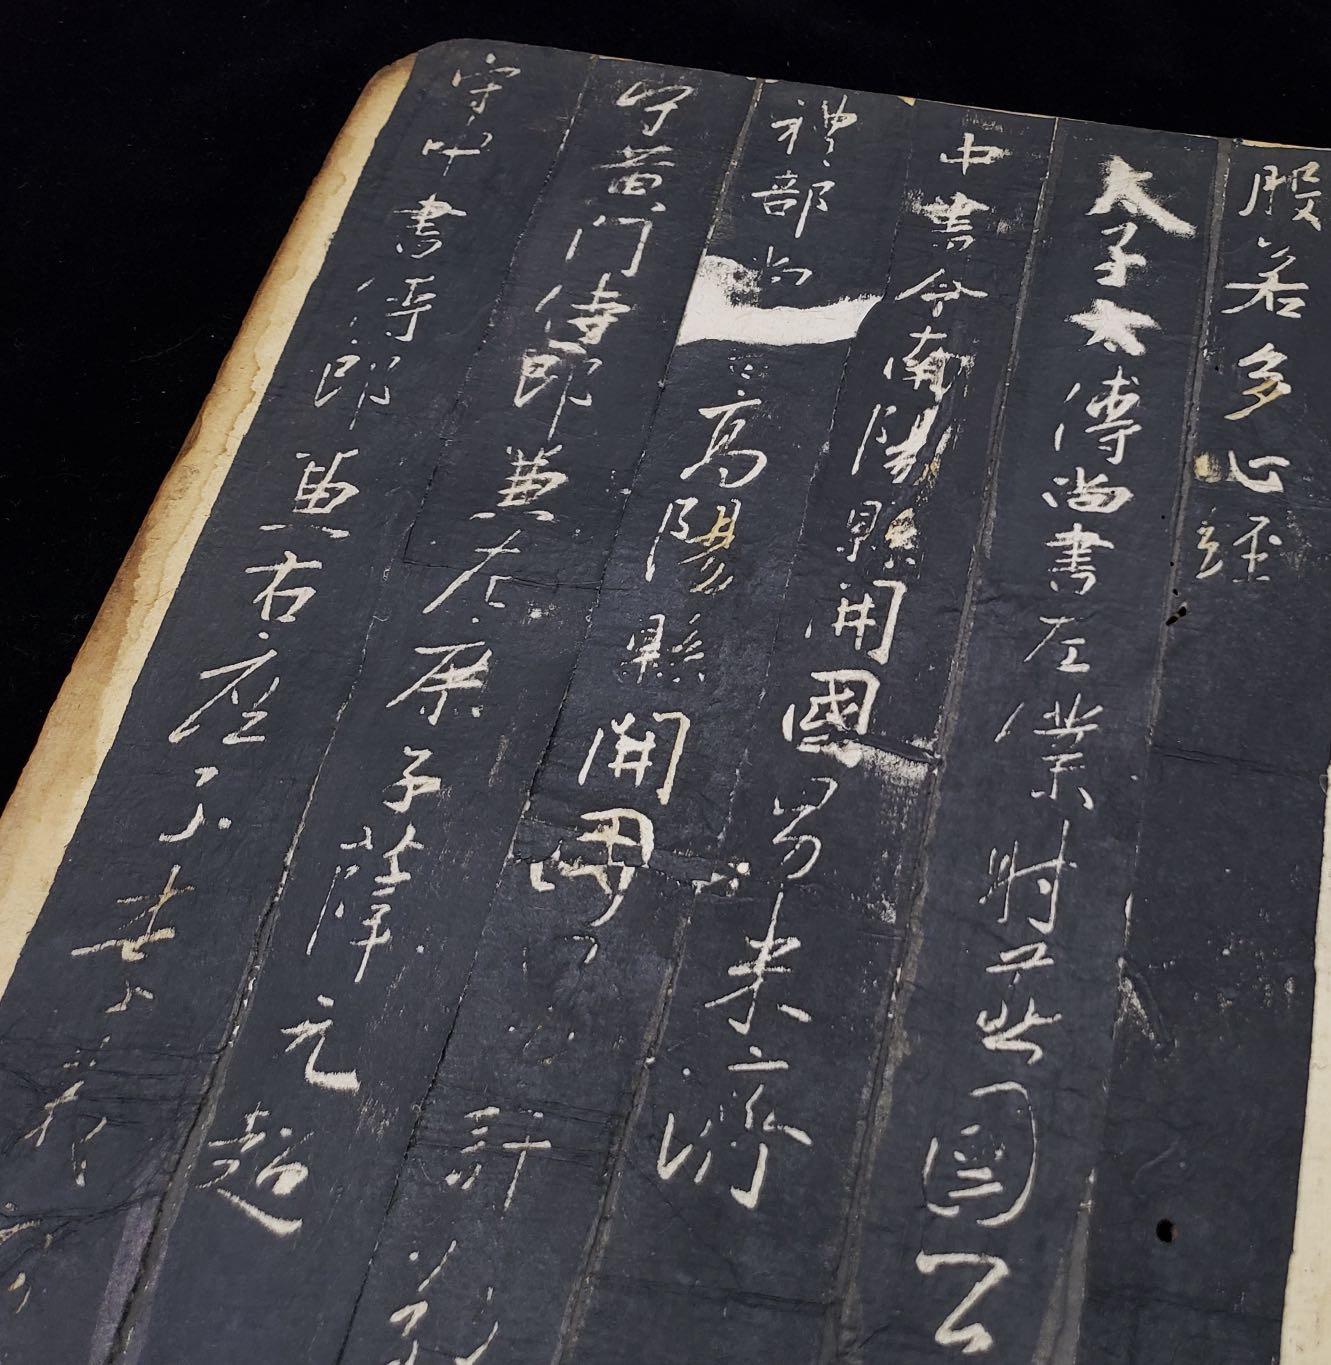 般若多心經
太子太傅尚書左僕射燕國公
中書令南陽縣開國男來濟
禮部尚高陽縣開國男許敬
守黃門侍郎兼左庶子薛元超
守中書侍郎兼右庶子李義府